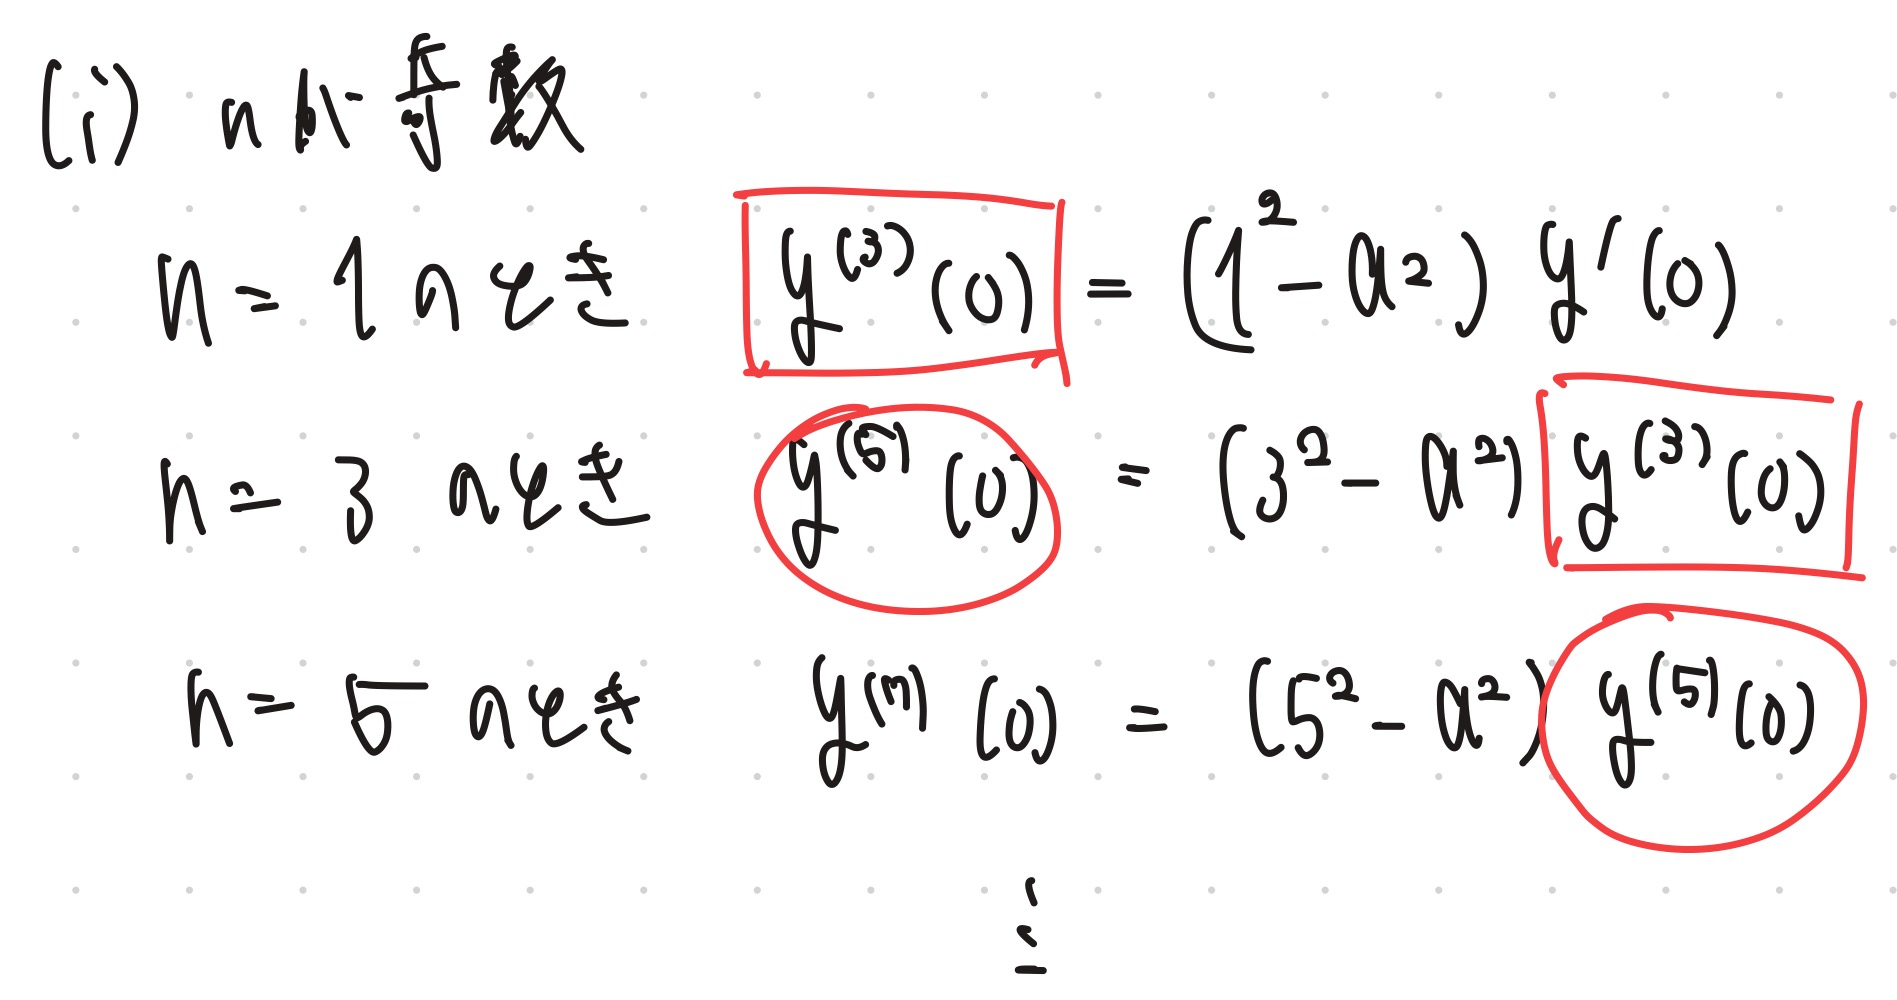 (i) nが奇数
n=1のとき y^(3)(0) = (1^2 - a^2) y'(0)
n=3のとき y^(5)(0) = (3^2 - a^2) y^(3)(0)
n=5のとき y^(7)(0) = (5^2 - a^2) y^(5)(0)
⋮